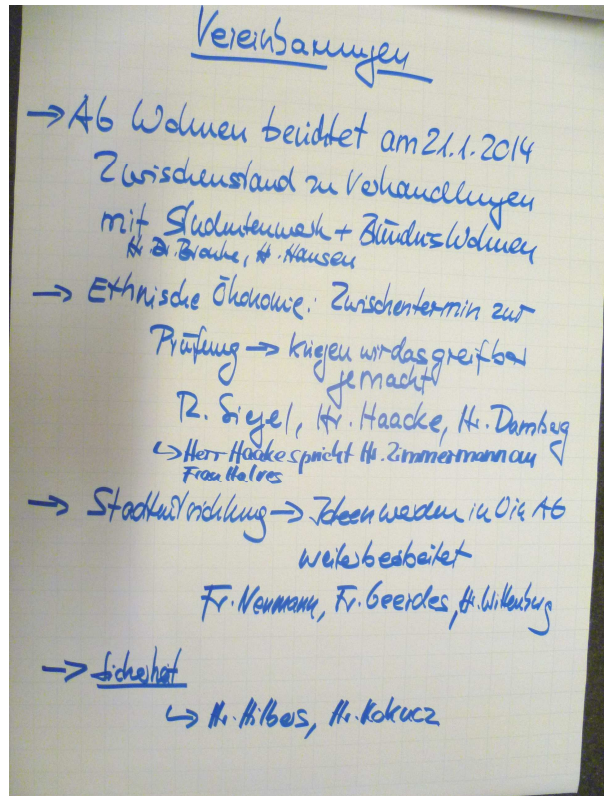 Vereinbarungen
→ AG Wohnen berichtet am 21.1.2014
Zwischenstand zu Verhandlungen
mit Studentenwerk + Bündnis Wohnen
Hr. Dr. Hansen
→ Ethnische Ökonomie: Zwischentermin zur
Prüfung → kriegen wir das greifbar
gemacht
R. Siegel, Hr. Haacke, Hr. Damberg
↳ Herr Haacke spricht Hr. Zimmermann an
Frau Halves
→ Ideen werden in AG
weiterbearbeitet
Fr. Neumann, Fr. Geerdes, Hr. Wittenburg
→ Sicherheit
↳ Hr. Hilbers, Hr.